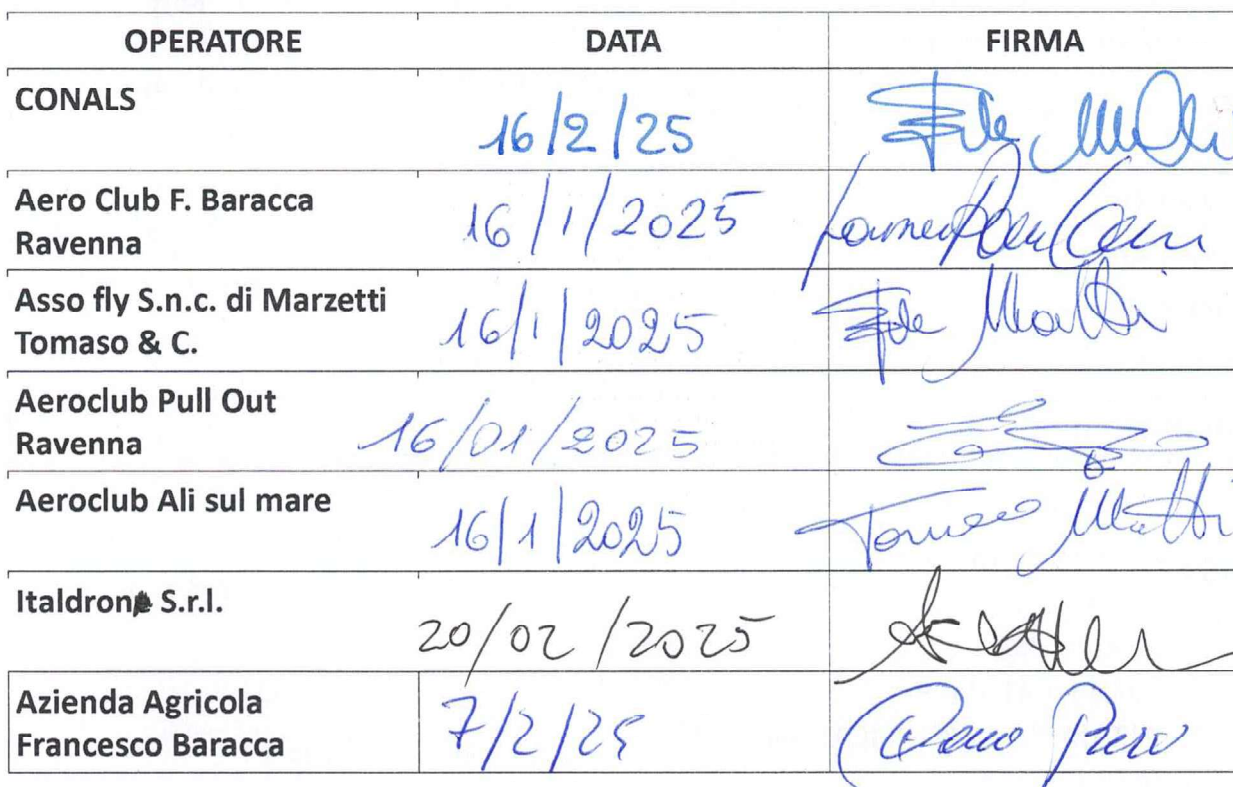 OPERATORE DATA FIRMA
CONALS
16/2/25
Aero Club F. Baracca
Ravenna
16/1/2025
Asso fly S.n.c. di Marzetti
Tomaso & C.
16/1/2025
Aeroclub Pull Out
Ravenna
16/01/2025
Aeroclub Ali sul mare
16/1/2025
Italdrone S.r.l.
20/02/2025
Azienda Agricola
Francesco Baracca
7/2/25